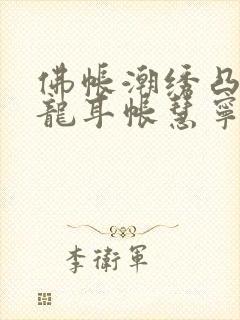 佛帐潮绣凸
龍耳帐慧寧
李衛軍